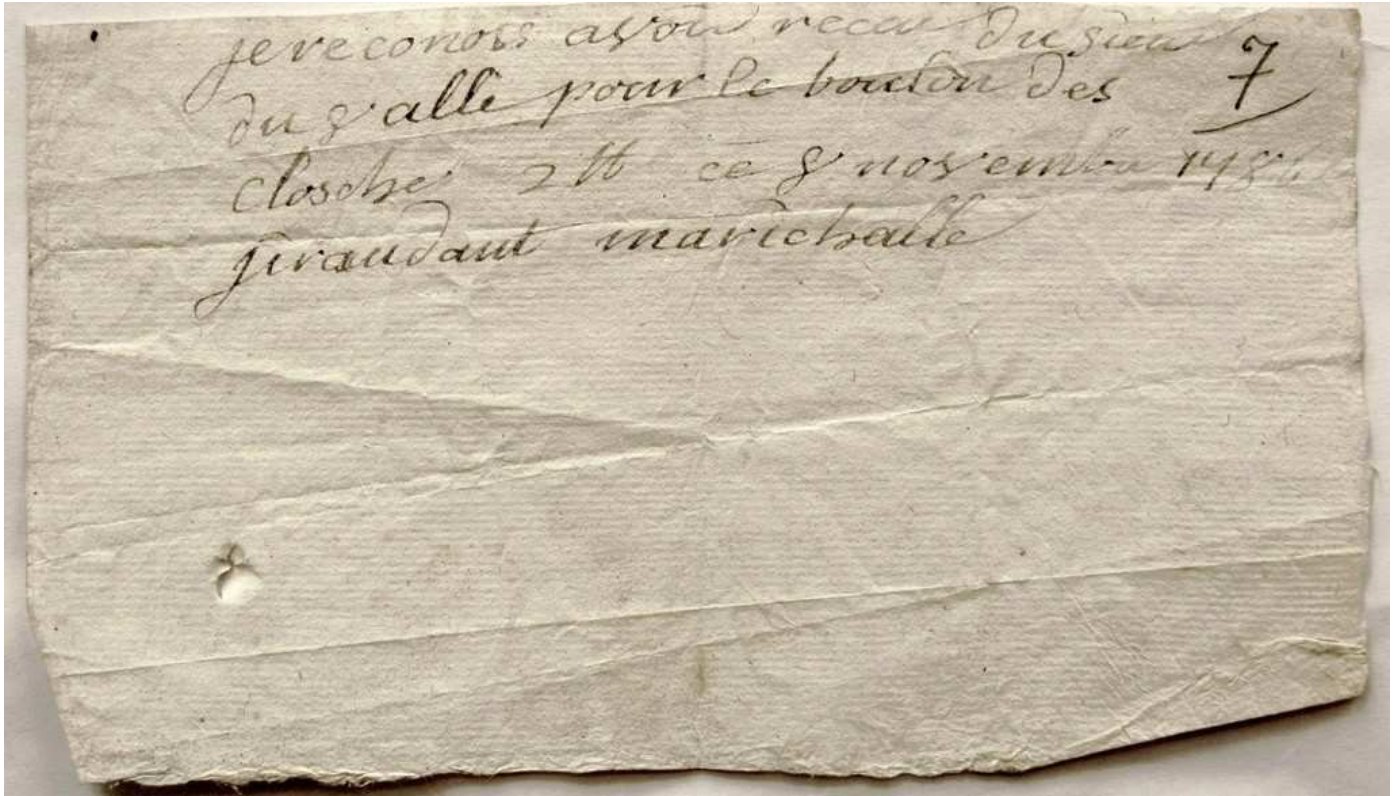 je reconois avoir receu du sieur
du valle pour le boulon des 7
closche 2 ₶ ce 8 novembre
jiraudant marichalle